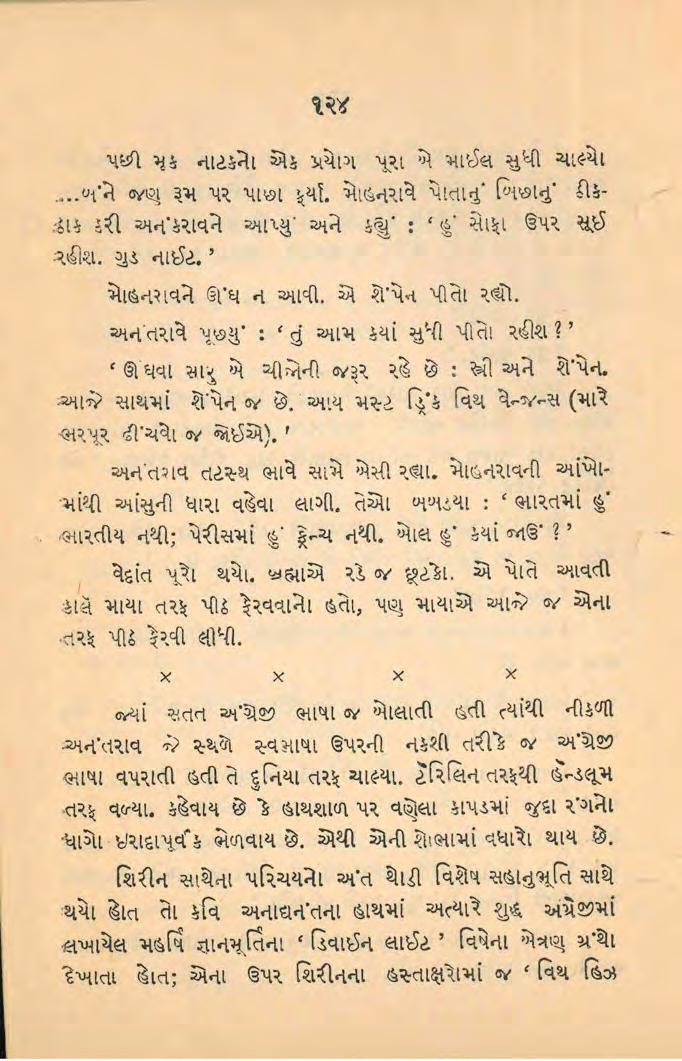 ૧૨૪
પછી મૂક નાટકનો એક પ્રયોગ પૂરા બે માઈલ સુધી ચાલ્યો
....બંને જણ રૂમ પર પાછા ફર્યા. મોહનરાવે પોતાનું બિછાનું ઠીક-
ઠાક કરી અનંકરાવને આપ્યું અને કહ્યું : ‘ હું સોફા ઉપર સૂઈ
રહીશ. ગુડ નાઈટ. ’
મોહનરાવને ઊંઘ ન આવી. એ શેંપેન પીતો રહ્યો.
અનંતરાવે પૂછ્યું : ‘ તું આમ કયાં સુધી પીતો રહીશ ? ’
‘ ઊંઘવા સારુ બે ચીજોની જરૂર રહે છે : સ્ત્રી અને શેંપેન.
આજે સાથમાં શેંપેન જ છે. આય મસ્ટ ડ્રિંક વિથ વેન્જન્સ (મારે
ભરપૂર ઢીંચવો જ જોઈએ). ’
અનંતરાવ તટસ્થ ભાવે સામે બેસી રહ્યા. મોહનરાવની આંખો-
માંથી આંસુની ધારા વહેવા લાગી. તેઓ બબડયા : ‘ ભારતમાં હું
ભારતીય નથી; પેરીસમાં હું ફ્રેન્ચ નથી. બોલ હું કયાં જાઉં ? ’
વેદાંત પૂરો થયો. બ્રહ્માએ રડે જ છૂટકો. એ પોતે આવતી
કાલે માયા તરફ પીઠ ફેરવવાનો હતો, પણ માયાએ આજે જ એના
તરફ પીઠ ફેરવી લીધી.
× × × ×
જ્યાં સતત અંગ્રેજી ભાષા જ બોલાતી હતી ત્યાંથી નીકળી
અનંતરાવ જે સ્થળે સ્વભાષા ઉપરની નકશી તરીકે જ અંગ્રેજી
ભાષા વપરાતી હતી તે દુનિયા તરફ ચાલ્યા. ટૅરિલિન તરફથી હૅન્ડલૂમ
તરફ વળ્યા. કહેવાય છે કે હાથશાળ પર વણેલા કાપડમાં જુદા રંગનો
ધાગો ઇરાદાપૂર્વક ભેળવાય છે. એથી એની શોભામાં વધારો થાય છે.
શિરીન સાથેના પરિચયનો અંત થોડી વિશેષ સહાનુભૂતિ સાથે
થયો હોત તો કવિ અનાદ્યનંતના હાથમાં અત્યારે શુદ્ધ અંગ્રેજીમાં
લખાયેલ મહર્ષિ જ્ઞાનમૂર્તિના ‘ ડિવાઈન લાઈટ ’ વિષેના બેત્રણ ગ્રંથો
દેખાતા હોત; એના ઉપર શિરીનના હસ્તાક્ષરોમાં જ ‘ વિથ હિઝ